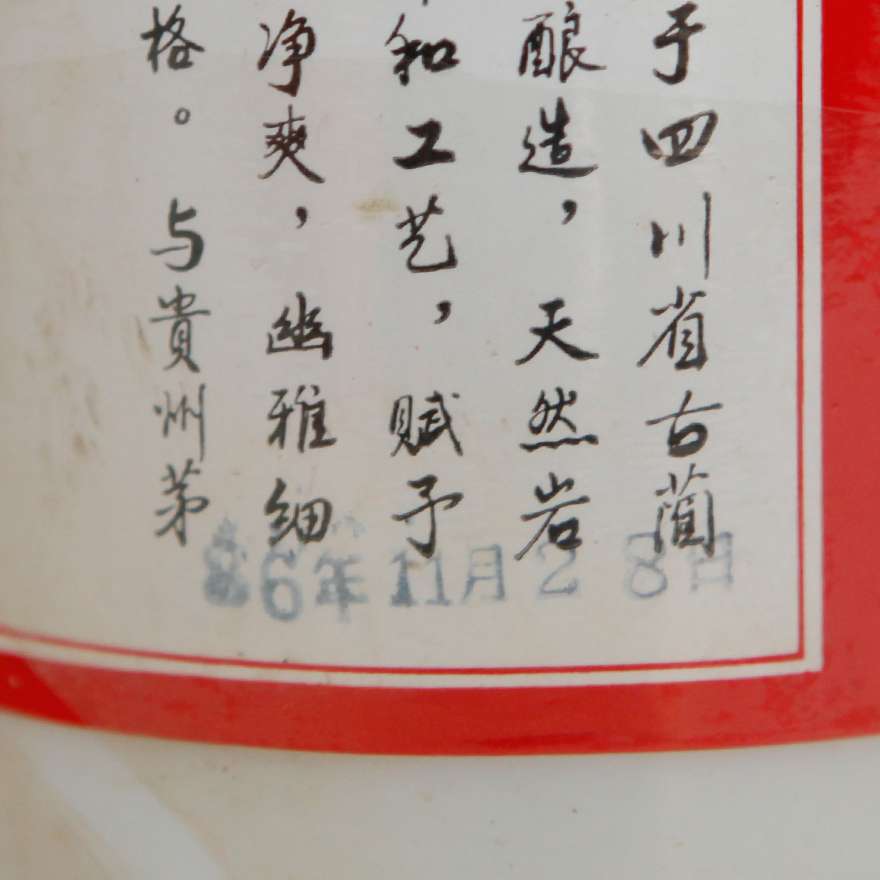 于四川省古蔺
酿造，天然岩
和工艺，赋予
净爽，幽雅细
格。与貴州茅
86年11月28日